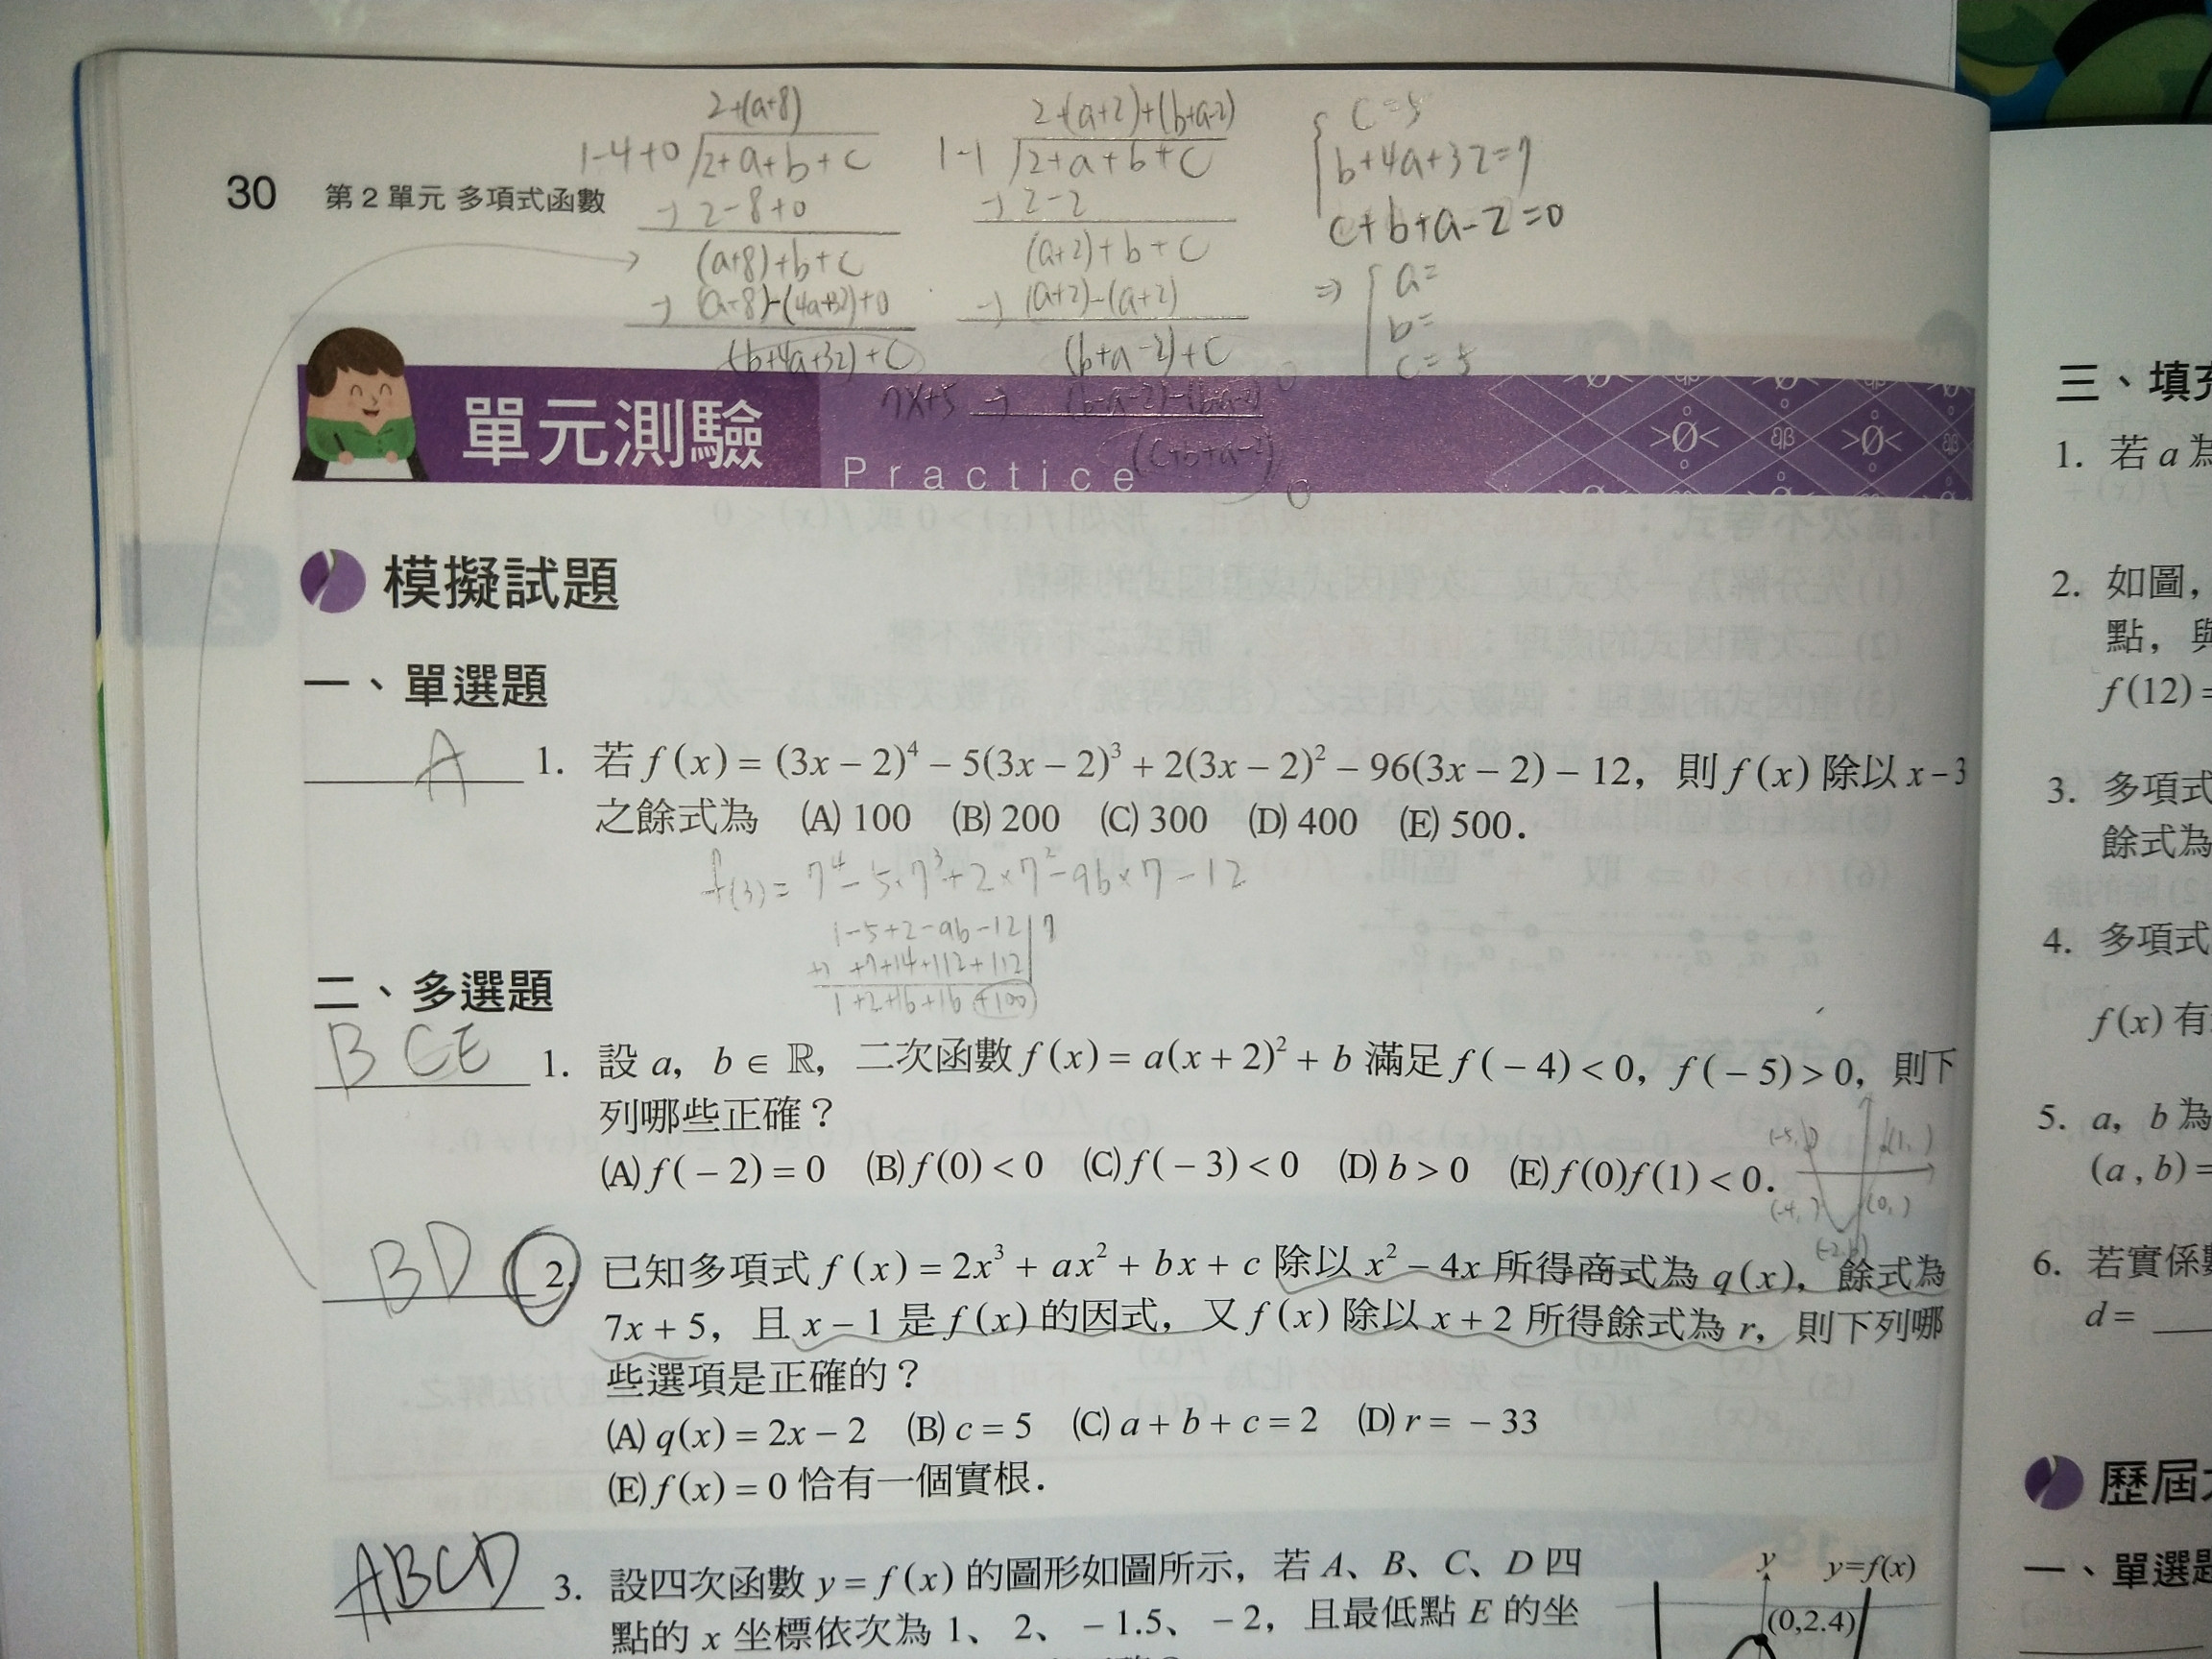 2+(a+8)
1-4+0 2+a+b+c
-) 2-8+0
(a+8)+b+c
(b+4a+32)+c
7x+5
2+(a+2)+(b+a-2)
1-1 2+a+b+c
-) 2-2
(a+2)+b+c
-) (a+2)-(a+2)
(b+a-2)+c
(c+b+a-2)
0
c=5
b+4a+32=7
c+b+a-2=0
⇒ a=
b=
c=5
30 第2單元 多項式函數
單元測驗 Practice
模擬試題
一、單選題
A 1. 若 f(x) = (3x − 2)⁴ − 5(3x − 2)³ + 2(3x − 2)² − 96(3x − 2) − 12，則 f(x) 除以 x − 3
之餘式為 (A) 100 (B) 200 (C) 300 (D) 400 (E) 500．
f(3) = 7⁴-5×7³+2×7²-96×7-12
1-5+2-96-12 7
+) +7+14+112+112
1+2+16+16+100
二、多選題
BCE 1. 設 a，b ∈ ℝ，二次函數 f(x) = a(x + 2)² + b 滿足 f(− 4) < 0，f(− 5) > 0，則下
列哪些正確？
(A) f(− 2) = 0 (B) f(0) < 0 (C) f(− 3) < 0 (D) b > 0 (E) f(0)f(1) < 0．
BD 2. 已知多項式 f(x) = 2x³ + ax² + bx + c 除以 x² − 4x 所得商式為 q(x)，餘式為
7x + 5，且 x − 1 是 f(x) 的因式，又 f(x) 除以 x + 2 所得餘式為 r，則下列哪
些選項是正確的？
(A) q(x) = 2x − 2 (B) c = 5 (C) a + b + c = 2 (D) r = − 33
(E) f(x) = 0 恰有一個實根．
ABCD 3. 設四次函數 y = f(x) 的圖形如圖所示，若 A、B、C、D 四
點的 x 坐標依次為 1、2、− 1.5、− 2，且最低點 E 的坐
y y=f(x)
(0,2.4)
三、填
1. 若 a 為
2. 如圖，
點，與
f(12) =
3. 多項式
餘式為
4. 多項式
f(x) 有
5. a，b 為
(a , b) =
6. 若實係
d =
歷屆
一、單選